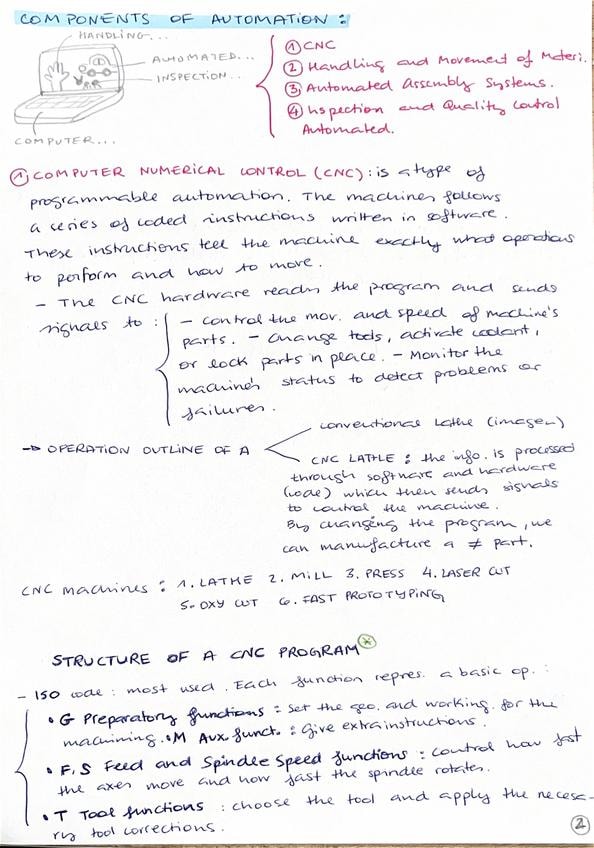 COMPONENTS OF AUTOMATION:
HANDLING...
AUTOMATED...
INSPECTION...
COMPUTER...
① CNC
② Handling and Movement of Materi.
③ Automated Assembly Systems.
④ Inspection and Quality Control
Automated.
① COMPUTER NUMERICAL CONTROL (CNC): is a type of
programmable automation. The machines follows
a series of coded instructions written in software.
These instructions tell the machine exactly what operations
to perform and how to move.
- The CNC hardware reads the program and sends
signals to:
- control the mov. and speed of machine's
parts. - Change tools, activate coolant,
or lock parts in place. - Monitor the
machine's status to detect problems or
failures.
→ OPERATION OUTLINE OF A
conventional Lathe (imagen)
CNC LATLE: the info. is processed
through software and hardware
(code) which then sends signals
to control the machine.
By changing the program, we
can manufacture a ≠ part.
CNC machines: 1. LATHE 2. MILL 3. PRESS 4. LASER CUT
5. OXY CUT 6. FAST PROTOTYPING
STRUCTURE OF A CNC PROGRAM *
- ISO code: most used. Each function repres. a basic op.:
• G Preparatory functions: set the geo. and working. for the
machining. • M Aux. funct.: give extra instructions.
• F, S Feed and Spindle Speed functions: control how fast
the axes move and how fast the spindle rotates.
• T Tool functions: choose the tool and apply the necessa-
ry tool corrections.
2